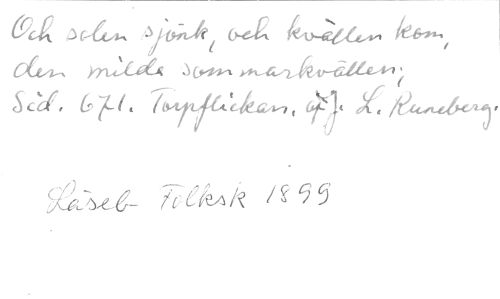 Och solen sjönk, och kvällen kom,
den milda sommarkvällen;
Sid. 671. Torpflickan. af J. L. Runeberg.
Läseb Folksk 1899